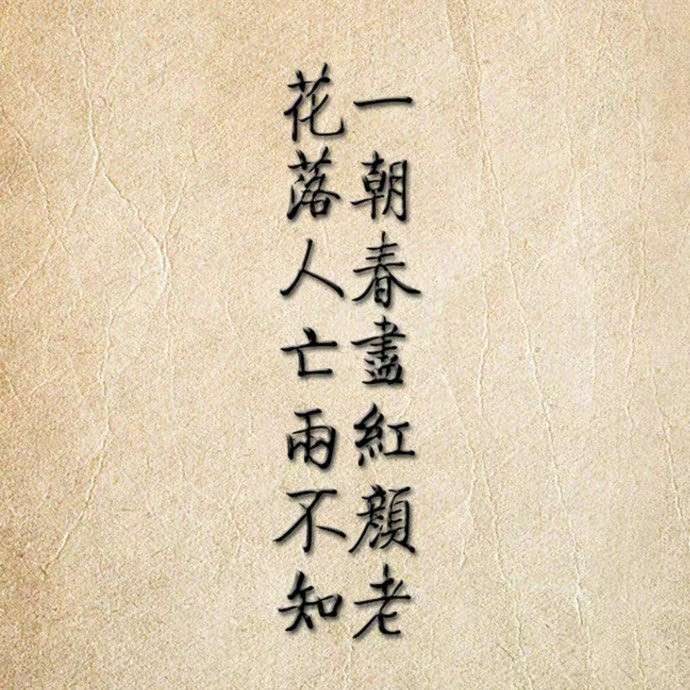 一朝春盡紅顏老
花落人亡雨不知